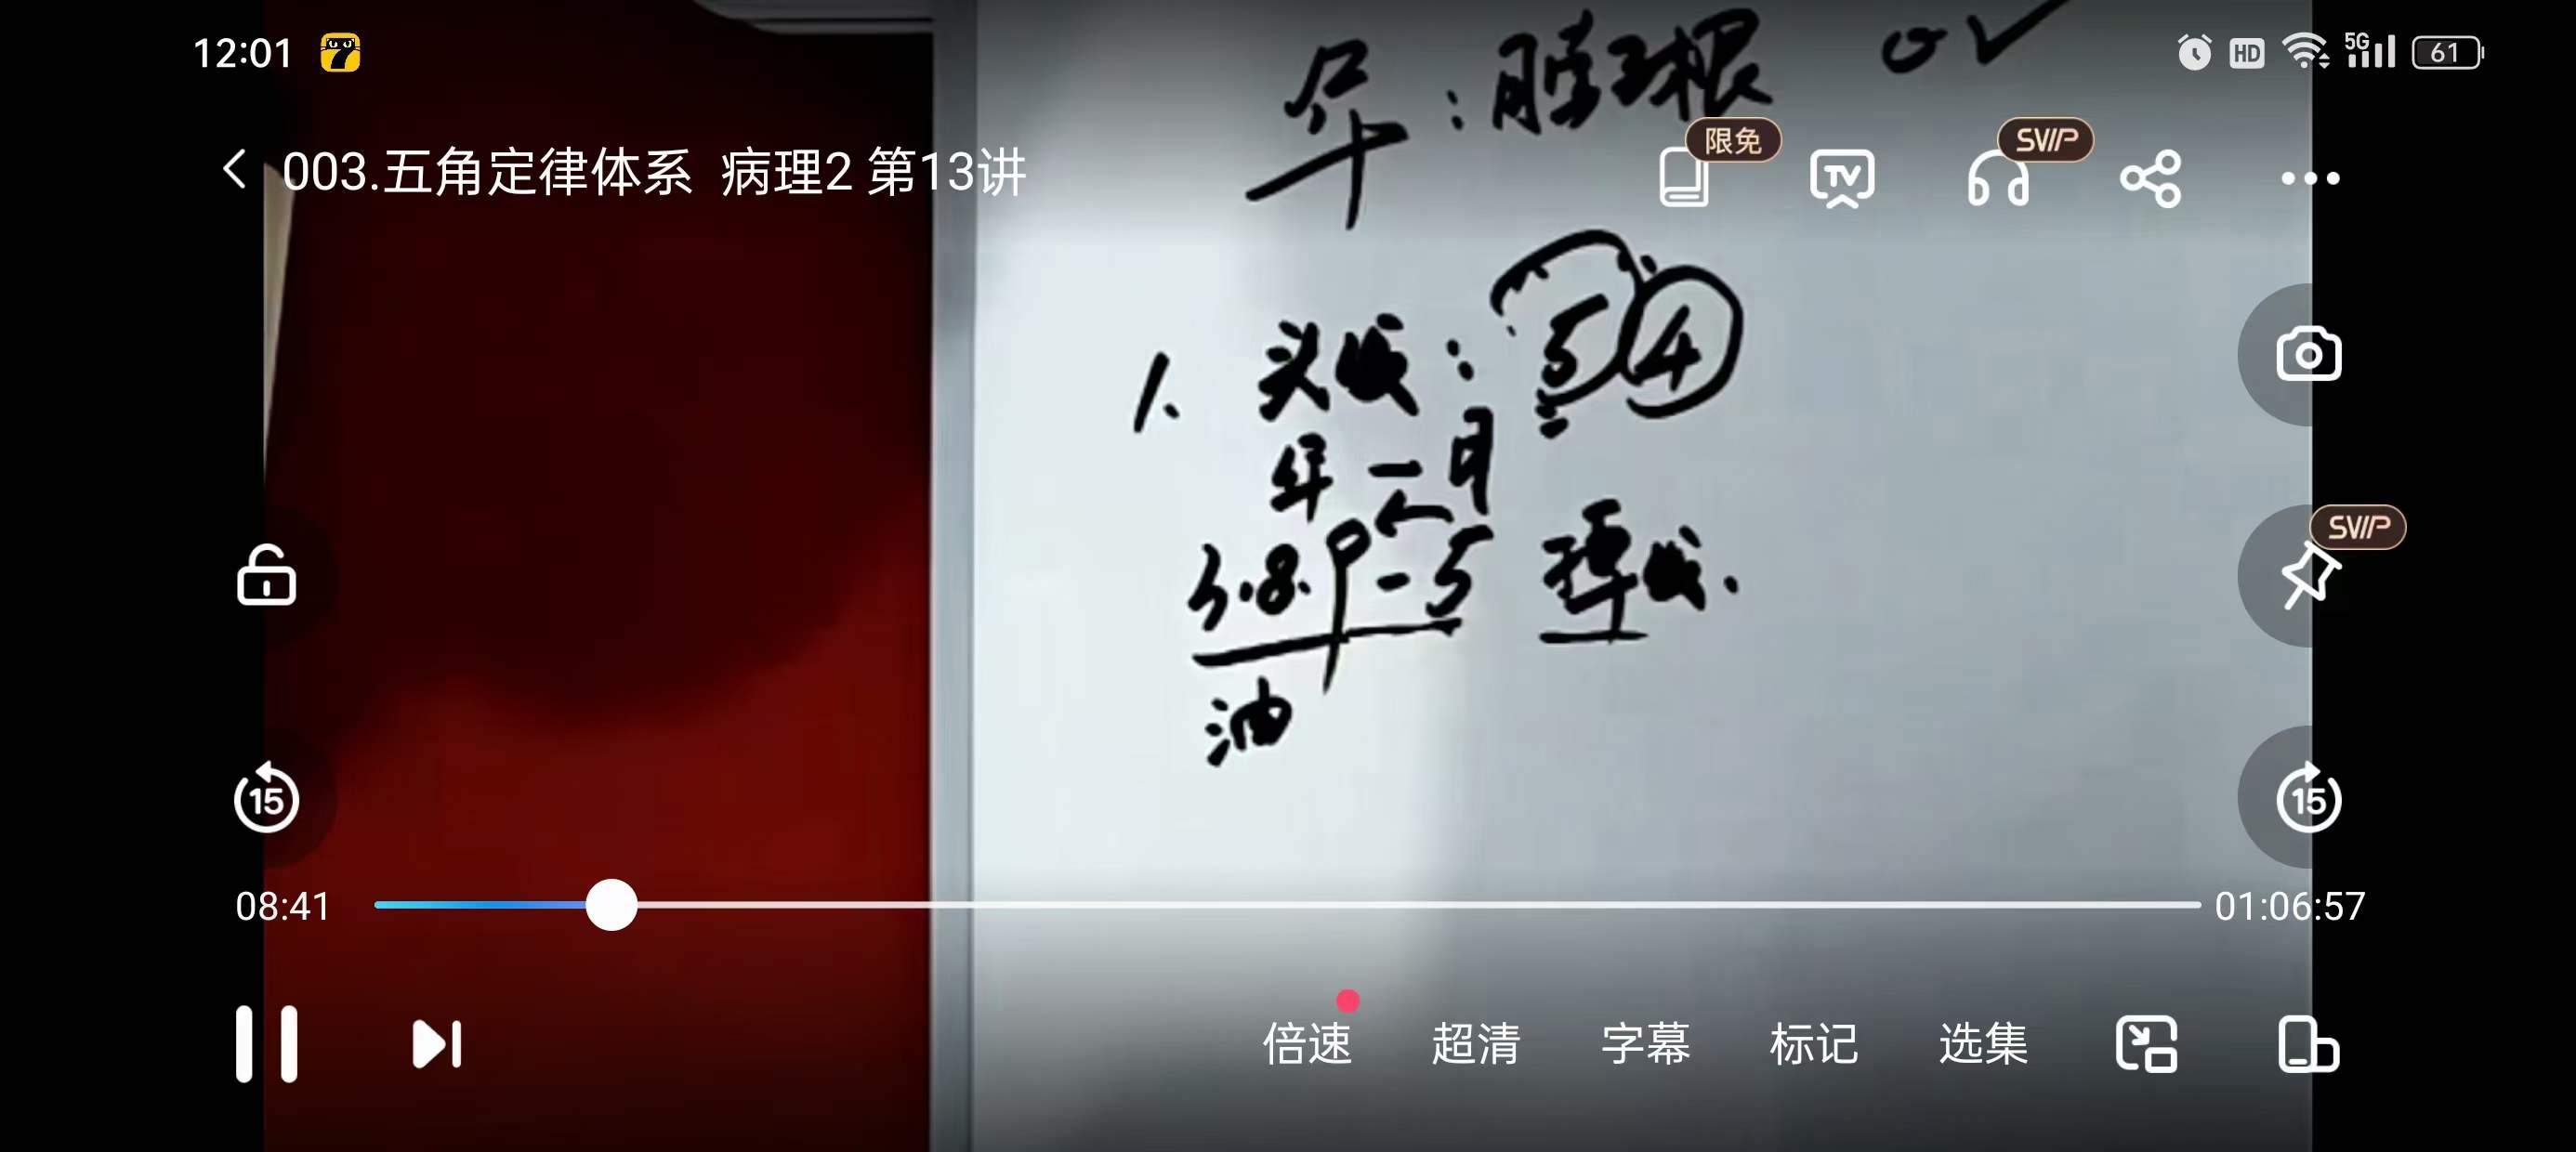 12:01
HD 5G 61
003.五角定律体系 病理2 第13讲
限免
TV
SVIP
:膀
1. 头发: 5 4
年-月
3.8.9-5 掉发.
油
SVIP
15
15
08:41
01:06:57
倍速 超清 字幕 标记 选集